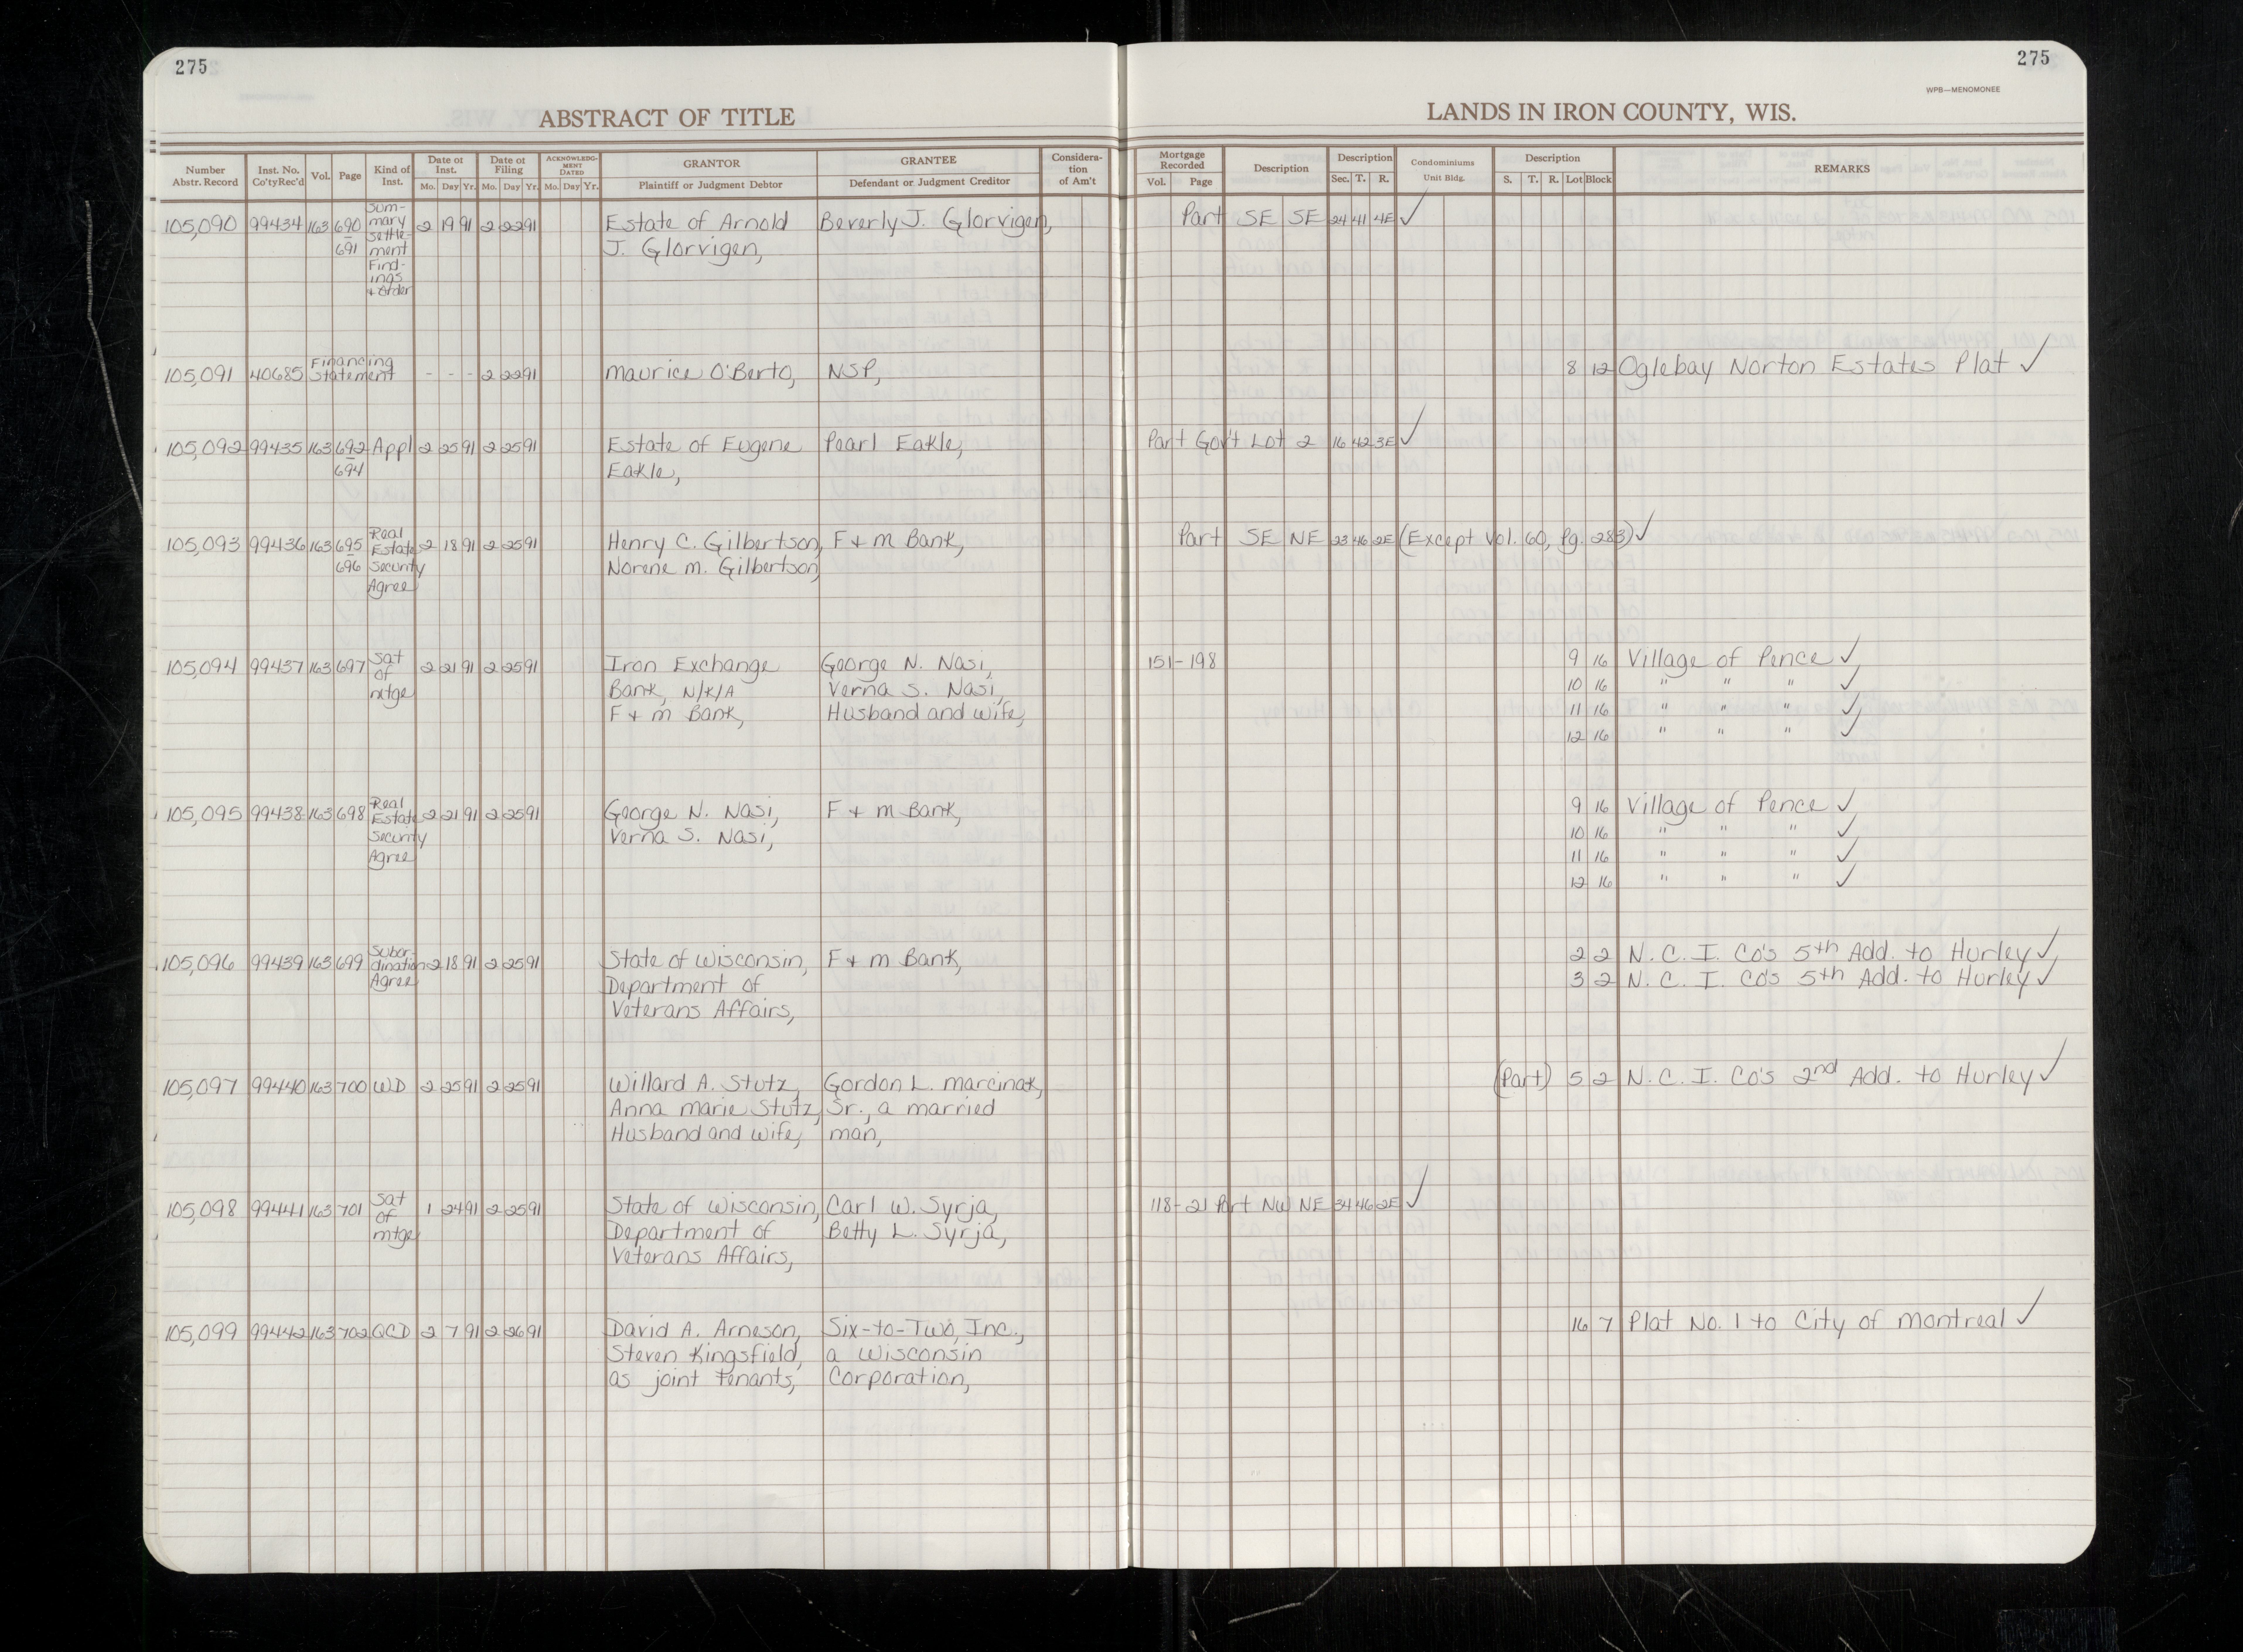 275
275
WPB—MENOMONEE
ABSTRACT OF TITLE
LANDS IN IRON COUNTY, WIS.
Number Abstr. Record Inst. No. Co'tyRec'd Vol. Page Kind of Inst. Date of Inst. Mo. Day Yr. Date of Filing Mo. Day Yr. ACKNOWLEDGMENT DATED Mo. Day Yr. GRANTOR Plaintiff or Judgment Debtor GRANTEE Defendant or Judgment Creditor Consideration of Am't Mortgage Recorded Vol. Page Description Description Sec. T. R. Condominiums Unit Bldg. Description S. T. R. Lot Block REMARKS
105,090 99434 163 690 Sum- 2 19 91 2 22 91 Estate of Arnold Beverly J. Glorvigen, Part SE SE 24 41 4E ✓
691 mary J. Glorvigen,
Settle-
ment
Find-
ings
+ Order
105,091 40685 Financing - - - 2 22 91 Maurice O'Berto, NSP, 8 12 Oglebay Norton Estates Plat ✓
Statement
105,092 99435 163 692 Appl 2 25 91 2 25 91 Estate of Eugene Pearl Eakle, Part Gov't Lot 2 16 42 3E ✓
694 Eakle,
105,093 99436 163 695 Real 2 18 91 2 25 91 Henry C. Gilbertson, F + M Bank, Part SE NE 23 46 2E (Except Vol. 60, Pg. 283) ✓
696 Estate Norene M. Gilbertson,
Security
Agree
105,094 99437 163 697 Sat 2 21 91 2 25 91 Iron Exchange George N. Nasi, 151-198 9 16 Village of Pence ✓
of Bank, N/K/A Verna S. Nasi, 10 16 " " " ✓
mtge F + M Bank, Husband and wife, 11 16 " " " ✓
12 16 " " " ✓
105,095 99438 163 698 Real 2 21 91 2 25 91 George N. Nasi, F + M Bank, 9 16 Village of Pence ✓
Estate Verna S. Nasi, 10 16 " " " ✓
Security 11 16 " " " ✓
Agree 12 16 " " " ✓
105,096 99439 163 699 Subor- 2 18 91 2 25 91 State of Wisconsin, F + M Bank, 2 2 N. C. I. Co's 5th Add. to Hurley ✓
dination Department of 3 2 N. C. I. Co's 5th Add. to Hurley ✓
Agree Veterans Affairs,
105,097 99440 163 700 WD 2 25 91 2 25 91 Willard A. Stutz, Gordon L. Marcinak, (Part) 5 2 N. C. I. Co's 2nd Add. to Hurley ✓
Anna Marie Stutz, Sr., a married
Husband and wife, man,
105,098 99441 163 701 Sat 1 24 91 2 25 91 State of Wisconsin, Carl W. Syrja, 118-21 Part NW NE 34 46 2E ✓
of Department of Betty L. Syrja,
mtge Veterans Affairs,
105,099 99442 163 702 QCD 2 7 91 2 26 91 David A. Arneson, Six-to-Two, Inc., 16 7 Plat No. 1 to City of Montreal ✓
Steven Kingsfield, a Wisconsin
as joint tenants, Corporation,